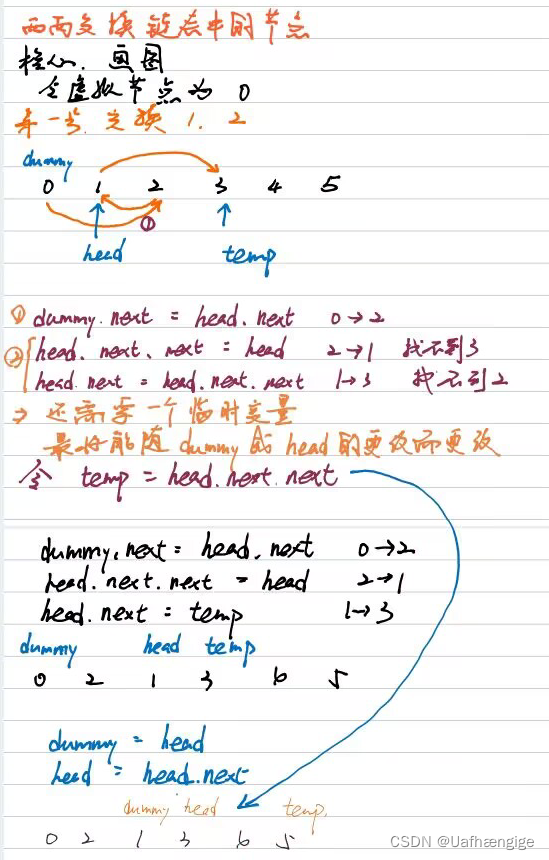 两两交换链表中的节点
核心. 画图
令虚拟节点为 0
第一步. 交换 1. 2
dummy
0 1 2 3 4 5
①
head temp
① dummy.next = head.next 0→2
② head.next.next = head 2→1 找不到3
head.next = head.next.next 1→3 找不到2
⇒ 还需要一个临时变量
最好能随 dummy 或 head 的更改而更改
令 temp = head.next.next
dummy.next = head.next 0→2
head.next.next = head 2→1
head.next = temp 1→3
dummy head temp
0 2 1 3 6 5
dummy = head
head = head.next
dummy head temp.
0 2 1 3 6 5
CSDN @Uafhængige